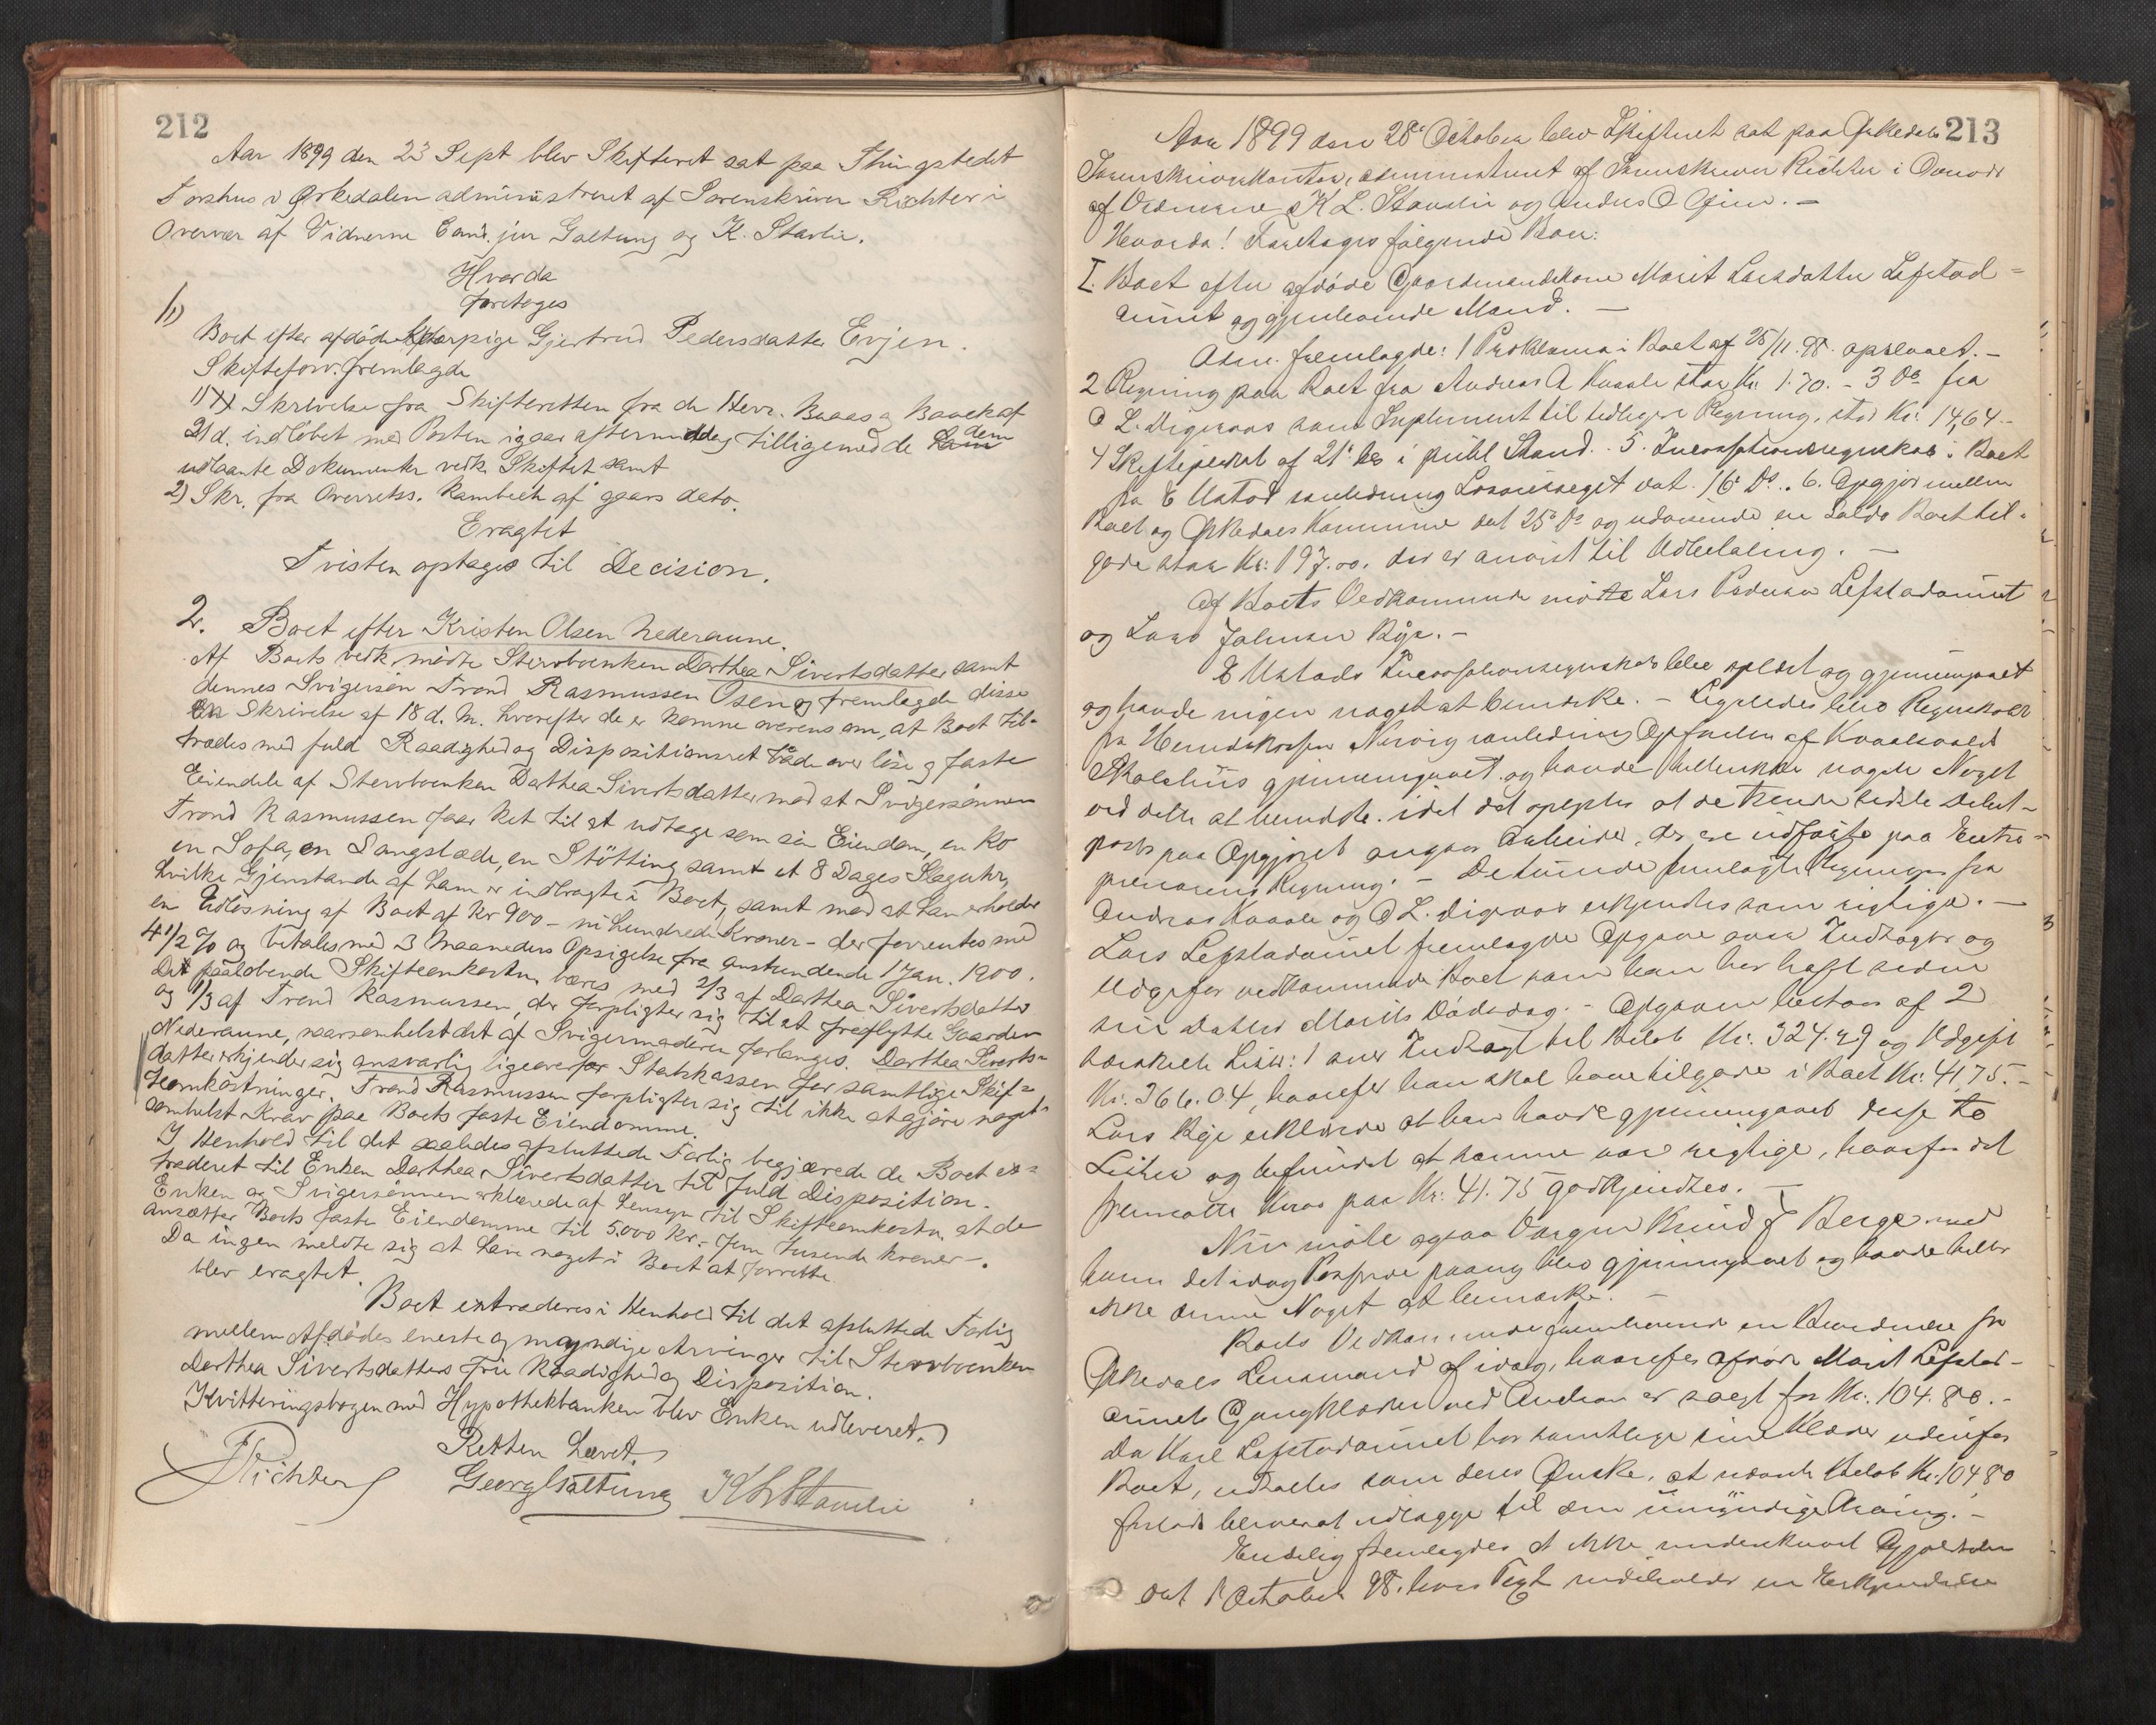 212
Aar 1899 den 23 Sept blev Skifteret sat paa Thingstedet
Forshus i Ørkedalen administreret af Sorenskriver Richter i
Overvær af Vidnerne Cand. jur Galtung og K. Stavlie.
Hvorda
foretoges
1)
Boet efter afdøde pige Gjertrud Pedersdatter Evjen.
Skifteforv. fremlagde
1) Skrivelse fra Skifteretten fra de Herr. Baaas og af
21 d. indløbet med Posten igaar aftermiddag tilligemed de dem
udlaante Dokumenter vedk. Skiftet samt
2) Skr. fra Overretss. Kambech af gaars dato.
Eragtet
Tvisten optages til Decision.
2. Boet efter Kristen Olsen Nederaune.
Af Boets vedk. mødte Stervboenken Darthea Sivertsdatter samt
dennes Svigersøn Trond Rasmussen Osen og fremlagde disse
En Skrivelse af 18 d. M. hvorefter de er komne overens om, at Boet til-
trædes med fuld Raadighed og Dispositionsret både over løse og faste
Eiendele af Stervboenken Darthea Sivertsdatter mod at Svigersønnen
Trond Rasmussen faar Ret til at udtage som sin Eiendom, en Ko
en Sofa, en Langslæde, en Støtting samt et 8 Dages Slaguhr,
hvilke Gjenstande af ham er indbragte i Boet, samt mod at han erholder
en Udløsning af Boet af Kr 900 - ni Hundrede Kroner - der forrentes med
4 1/2 % og betales med 3 Maaneders Opsigelse fra anstundende 1 Jan. 1900.
De paaløbende Skifteomkostn. bæres med 2/3 af Darthea Sivertsdatter
og 1/3 af Trond Rasmussen, der forpligter sig til at fraflytte Gaarden
Nederaune, naarsomhelst det af Svigermoderen forlanges. Darthea Siverts-
datter erkjender sig ansvarlig ligeoverfor Statskassen for samtlige Skif-
teomkostninger. Trond Rasmussen forpligter sig til ikke at gjøre noget-
somhelst Krav paa Boets faste Eiendomme.
I Henhold til det saaledes afsluttede Forlig begjærede de Boet ex-
traderet til Enken Darthea Sivertsdatter til fuld Disposition.
Enken og Svigersønnen erklærede af hensyn til Skifteomkostn. at de
ansætter Boets faste Eiendomme til 5000 Kr.- fem tusende kroner -.
Da ingen meldte sig at have noget i Boet at forrette
blev eragtet.
Boet extraderes i Henhold til det afsluttede Forlig
mellem Afdødes eneste og myndige Arvinger til Stervboenken
Darthea Sivertsdatters frie Raadighed og Disposition.
Kvitteringsbogen med Hypothekbanken blev Enken udleveret.
Retten hævet.
Richter Georg Galtung K L Stavlie
213
Aar 1899 den 28de October blev Skifteret sat paa Ørkedals
Sorenskriverkontor, administreret af Sorenskriver Richter i Overvær
af Vidnerne K L. Stavlie og Anders O Gjin. -
Hvorda! Foretoges følgende Boer:
I. Boet efter afdøde Gaardmandskone Marit Larsdatter Lefstad-
aunet og gjenlevende Mand. -
Adm. fremlagde: 1 Proklama i Boet af 25/11.98. opslaaet. -
2 Regning paa Boet fra Andreas A Kvaale stor Kr. 1.70. - 3 Do fra
O L. Digeraas som Suplement til tidligere Regning, stor Kr: 14,64 -
4 af 21de ds i Stand. - 5. Incassationsregnskab i Boet
fra E Ustad anledning Løsøresalget dat. 16de Ds. 6. Opgjør mellem
Boet og Ørkedals Kommune dat 25de Ds og udvisende en Saldo Boet til-
gode stor Kr: 197.00. der er anvist til Udbetaling. -
Af Boets Vedkommende mødte Lars Pedersen Lefstadaunet
og Lars Johnsen Bye. -
E Ustads Incassationsregnskab blev oplæst og gjennemgaaet
og havde ingen noget at bemærke. - Ligeledes blev Regnskabet
fra anledning Opførelsen af Kvaalsvolds
Skolehus gjennemgaaet, og havde hellerikke nogen Noget
ved dette at bemærke. idet det oplystes at de trende sidste Debet-
poster paa Opgjøret angaar Arbeider, der ere udførte paa Entre-
prenørens Regning. - De fremlagte Regninger fra
Andreas Kvaale og O L. Digeraas erkjendtes som rigtige. -
Lars Lefstadaunet fremlagde Opgave over Indtægter og
Udgifter vedkommende Boet som han har haft siden
sin Datter Marits Dødsdag. - Opgaven bestaar af 2
særskilte Lister: 1 over Indtægt til Beløb Kr. 324.29 og Udgift
Kr. 366.04, hvorefter han skal have tilgode i Boet Kr. 41,75. -
Lars Bye erklærede at han havde gjennemgaaet disse to
Lister og befundet at samme var rigtige, hvorfor det
fremsatte Krav paa Kr: 41.75 godkjendtes. -
Nu mødte ogsaa Værgen Knud J Berge med
ham det idag Passerede paany blev gjennemgaaet og havde heller
ikke denne Noget at bemærke. -
Boets Vedkommende fremleverede en Bevidnelse fra
Ørkedals Lensmand af idag, hvorefter afdøde Marit Lefstad-
aunets Gangklæder ved Auction er solgt for Kr. 104.80. -
Da Lefstadaunet har samtlige sine Klæder udenfor
Boet, udtaltes som deres Ønske, at nævnte Beløb Kr: 104 80
forlods bliver at udlægge til den umyndige Arving. -
Endelig fremlagdes et ikke underskrevet
dat 1 October 98. hvis Text indeholder en Erkjendelse